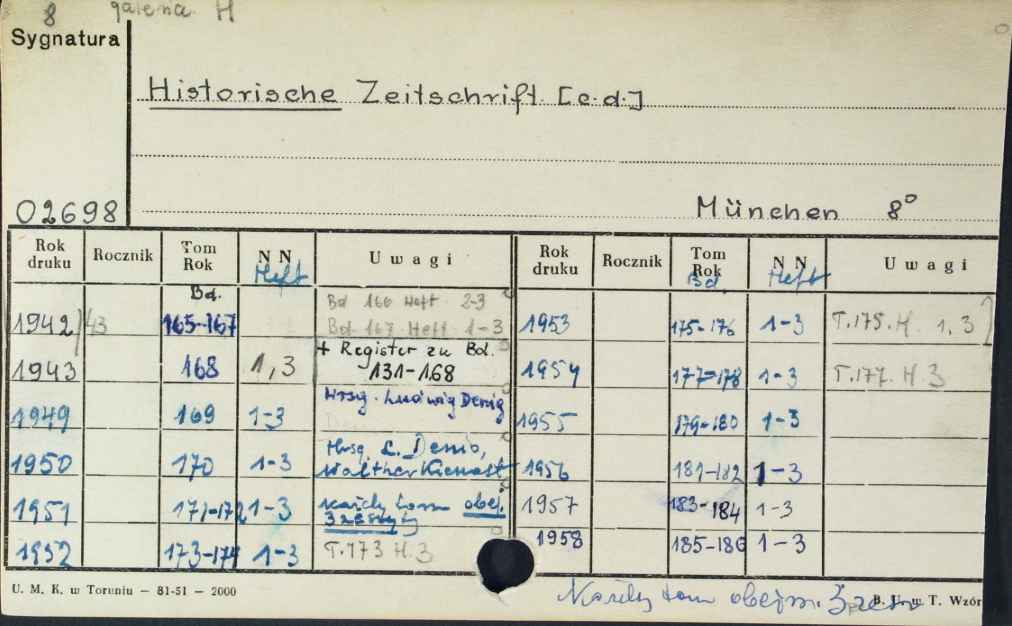 8 galena H
Sygnatura
Historische Zeitschrift [c.d.]
München 8°
02698
Rok druku Rocznik Tom Rok Bd. N N Heft Uwagi Rok druku Rocznik Tom Rok Bd. N N Heft Uwagi
Bd 166 Heft 2-3
1942/43 165-167 Bd. 167 Heft 1-3 1953 175-176 1-3 T.175. H. 1, 3
1943 168 1,3 + Register zu Bd. 131-168 1954 177-178 1-3 T.177. H. 3
1949 169 1-3 Hrsg. Ludwig 1955 179-180 1-3
1950 170 1-3 Hrsg. L. Walther Kienast 1956 181-182 1-3
1951 171-172 1-3 Każdy tom obej. 3 zeszyty 1957 183-184 1-3
1952 173-174 1-3 T.173 H. 3 1958 185-186 1-3
U. M. K. w Toruniu — 81-51 — 2000
Każdy tom obejm. 3
B. U. w T. Wzór